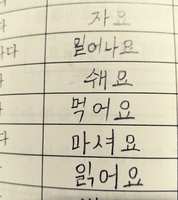 자요
다 일어나요
쉐요
먹어요
다 마셔요
읽어요